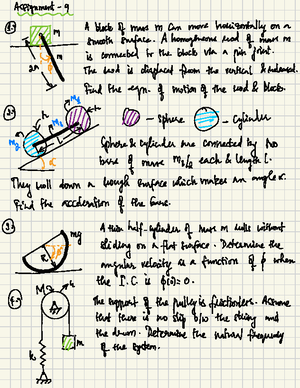 Assignment - 9
1.)
A block of mass m can move horizontally on a
smooth surface. A homogeneous rod of mass m
is connected to the block via a pin joint.
The rod is displaced from the vertical & released.
Find the eqn. of motion of the rod & block.
m
m
2.)
- Sphere
- Cylinder
Sphere & cylinder are connected by two
bars of mass each & length l.
They roll down a rough surface which makes an angle α.
Find the acceleration of the bars.
3.)
mg
R
A thin half-cylinder of mass m rolls without
sliding on a flat surface. Determine the
angular velocity as a function of φ when
the I.C. is φ(0)=0.
4.)
M
A
k
m
The support of the pulley is frictionless. Assume
that there is no slip b/w the string and
the drum. Determine the natural frequency
of the system.